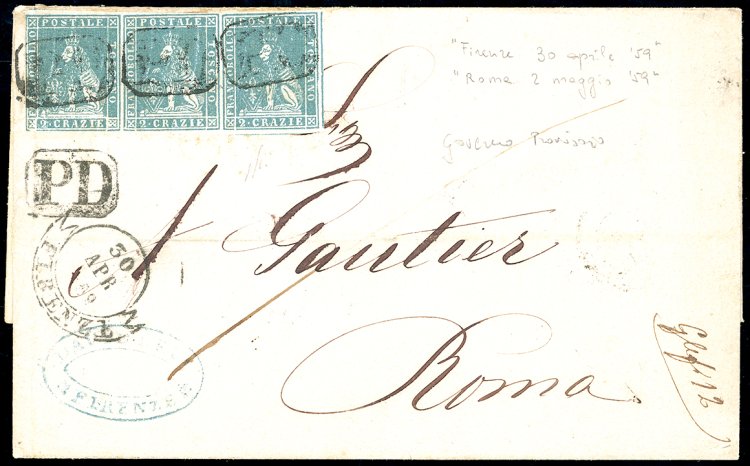 POSTALE POSTALE POSTALE
FRANCOBOLLO FRANCOBOLLO FRANCOBOLLO
TOSCANO TOSCANO TOSCANO
2 · CRAZIE 2 · CRAZIE 2 · CRAZIE
PD PD
"Firenze 30 aprile '59"
"Roma 2 maggio '59"
Governo Provvisorio
PD
30
APR
59
FIRENZE
Gautier
Roma
FIRENZE